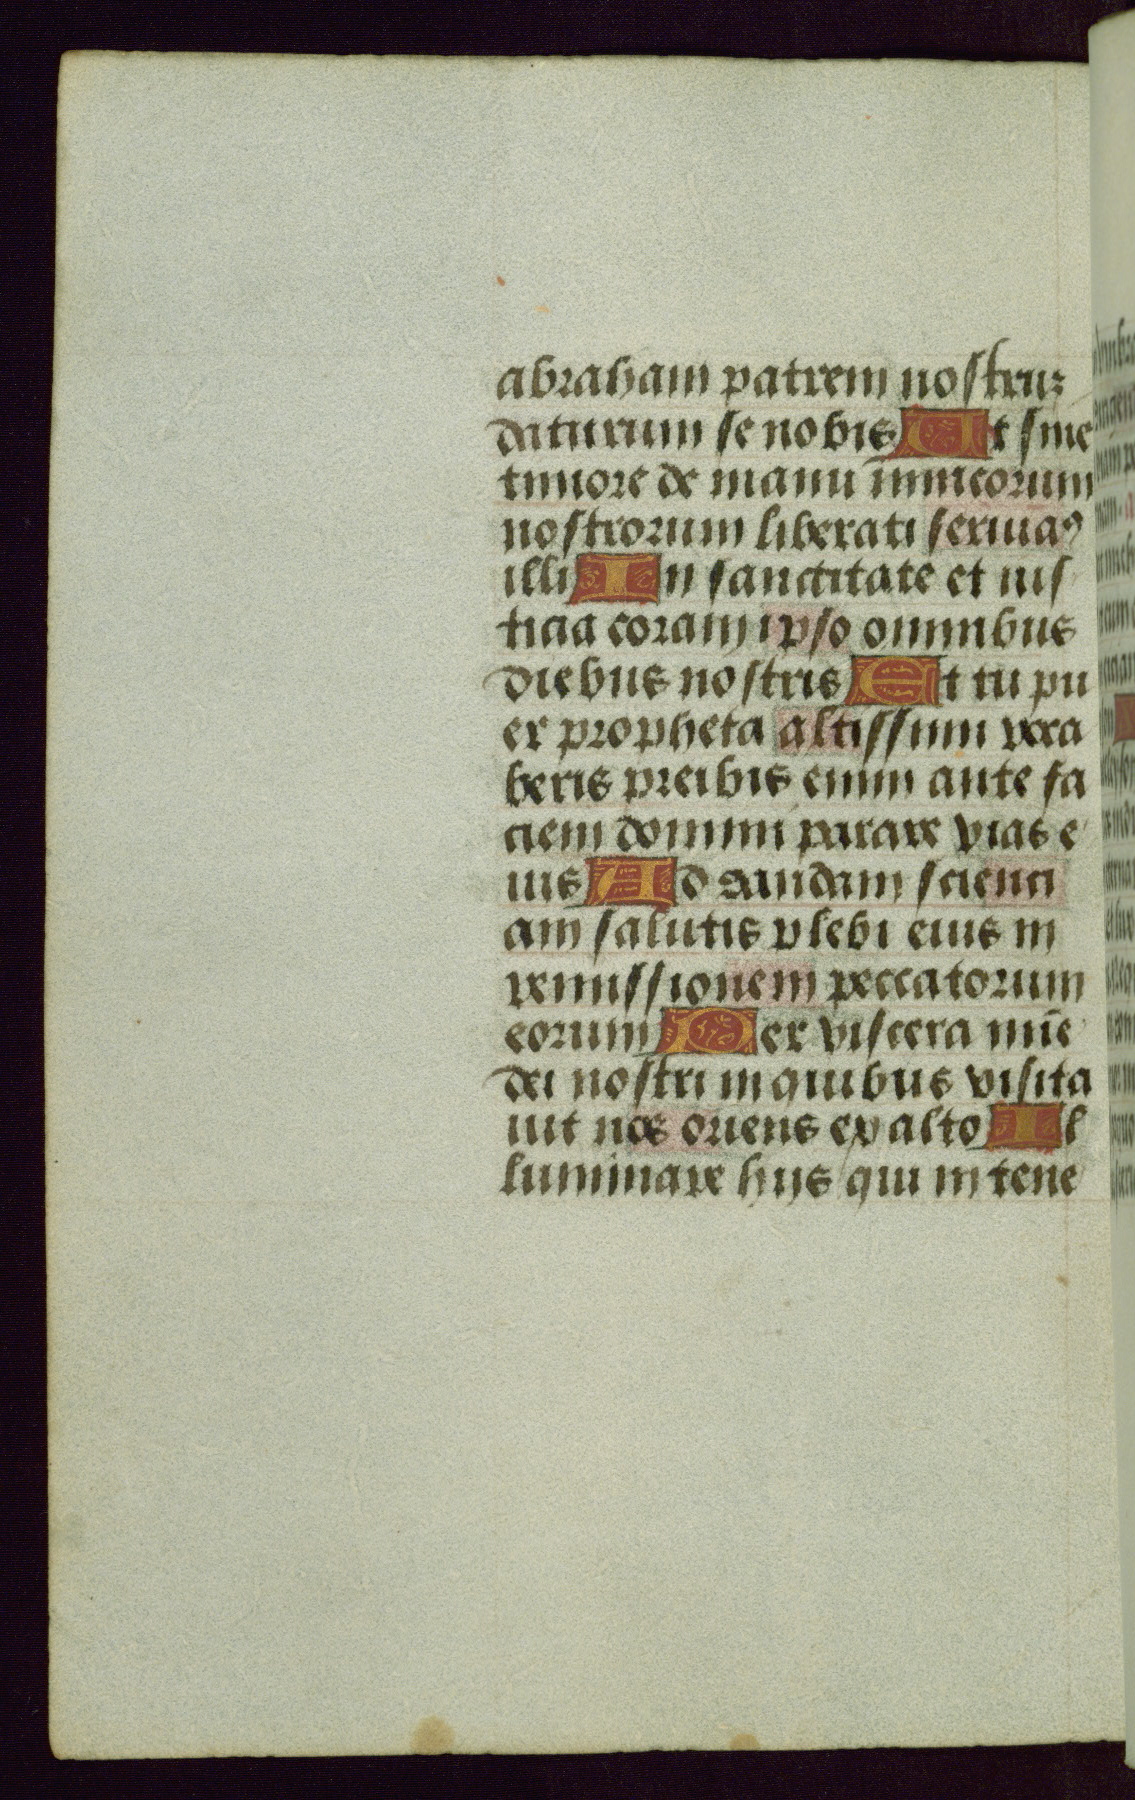 abraham patrem nostruz
daturum se nobis Ut sine
timore de manu inimicorum
nostrorum liberati seruiaꝰ
illi In sanctitate et ius
ticia coram ipso omnibus
diebus nostris Et tu pu
er propheta altissimi voca
beris preibis enim ante fa
ciem domini parare vias e
ius Ad dandam scienci
am salutis plebi eius in
remissionem peccatorum
eorum Per viscera mīe
dei nostri in quibus visita
uit nos oriens ex alto Il
luminare hijs qui in tene